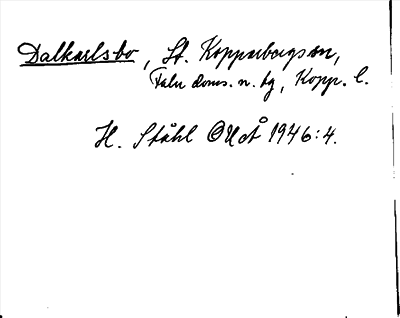 Dalkarlsbo, St. Kopparbergs sn,
Falu doms. n. tg, Kopp. l.
H. Ståhl OUÅ 1946:4.